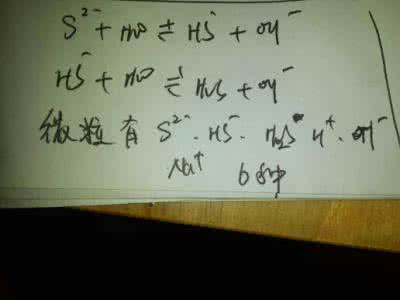 S²⁻ + H₂O ⇌ HS⁻ + OH⁻
HS⁻ + H₂O ⇌ H₂S + OH⁻
微粒有 S²⁻. HS⁻. H₂S H⁺. OH⁻
Na⁺ 6种